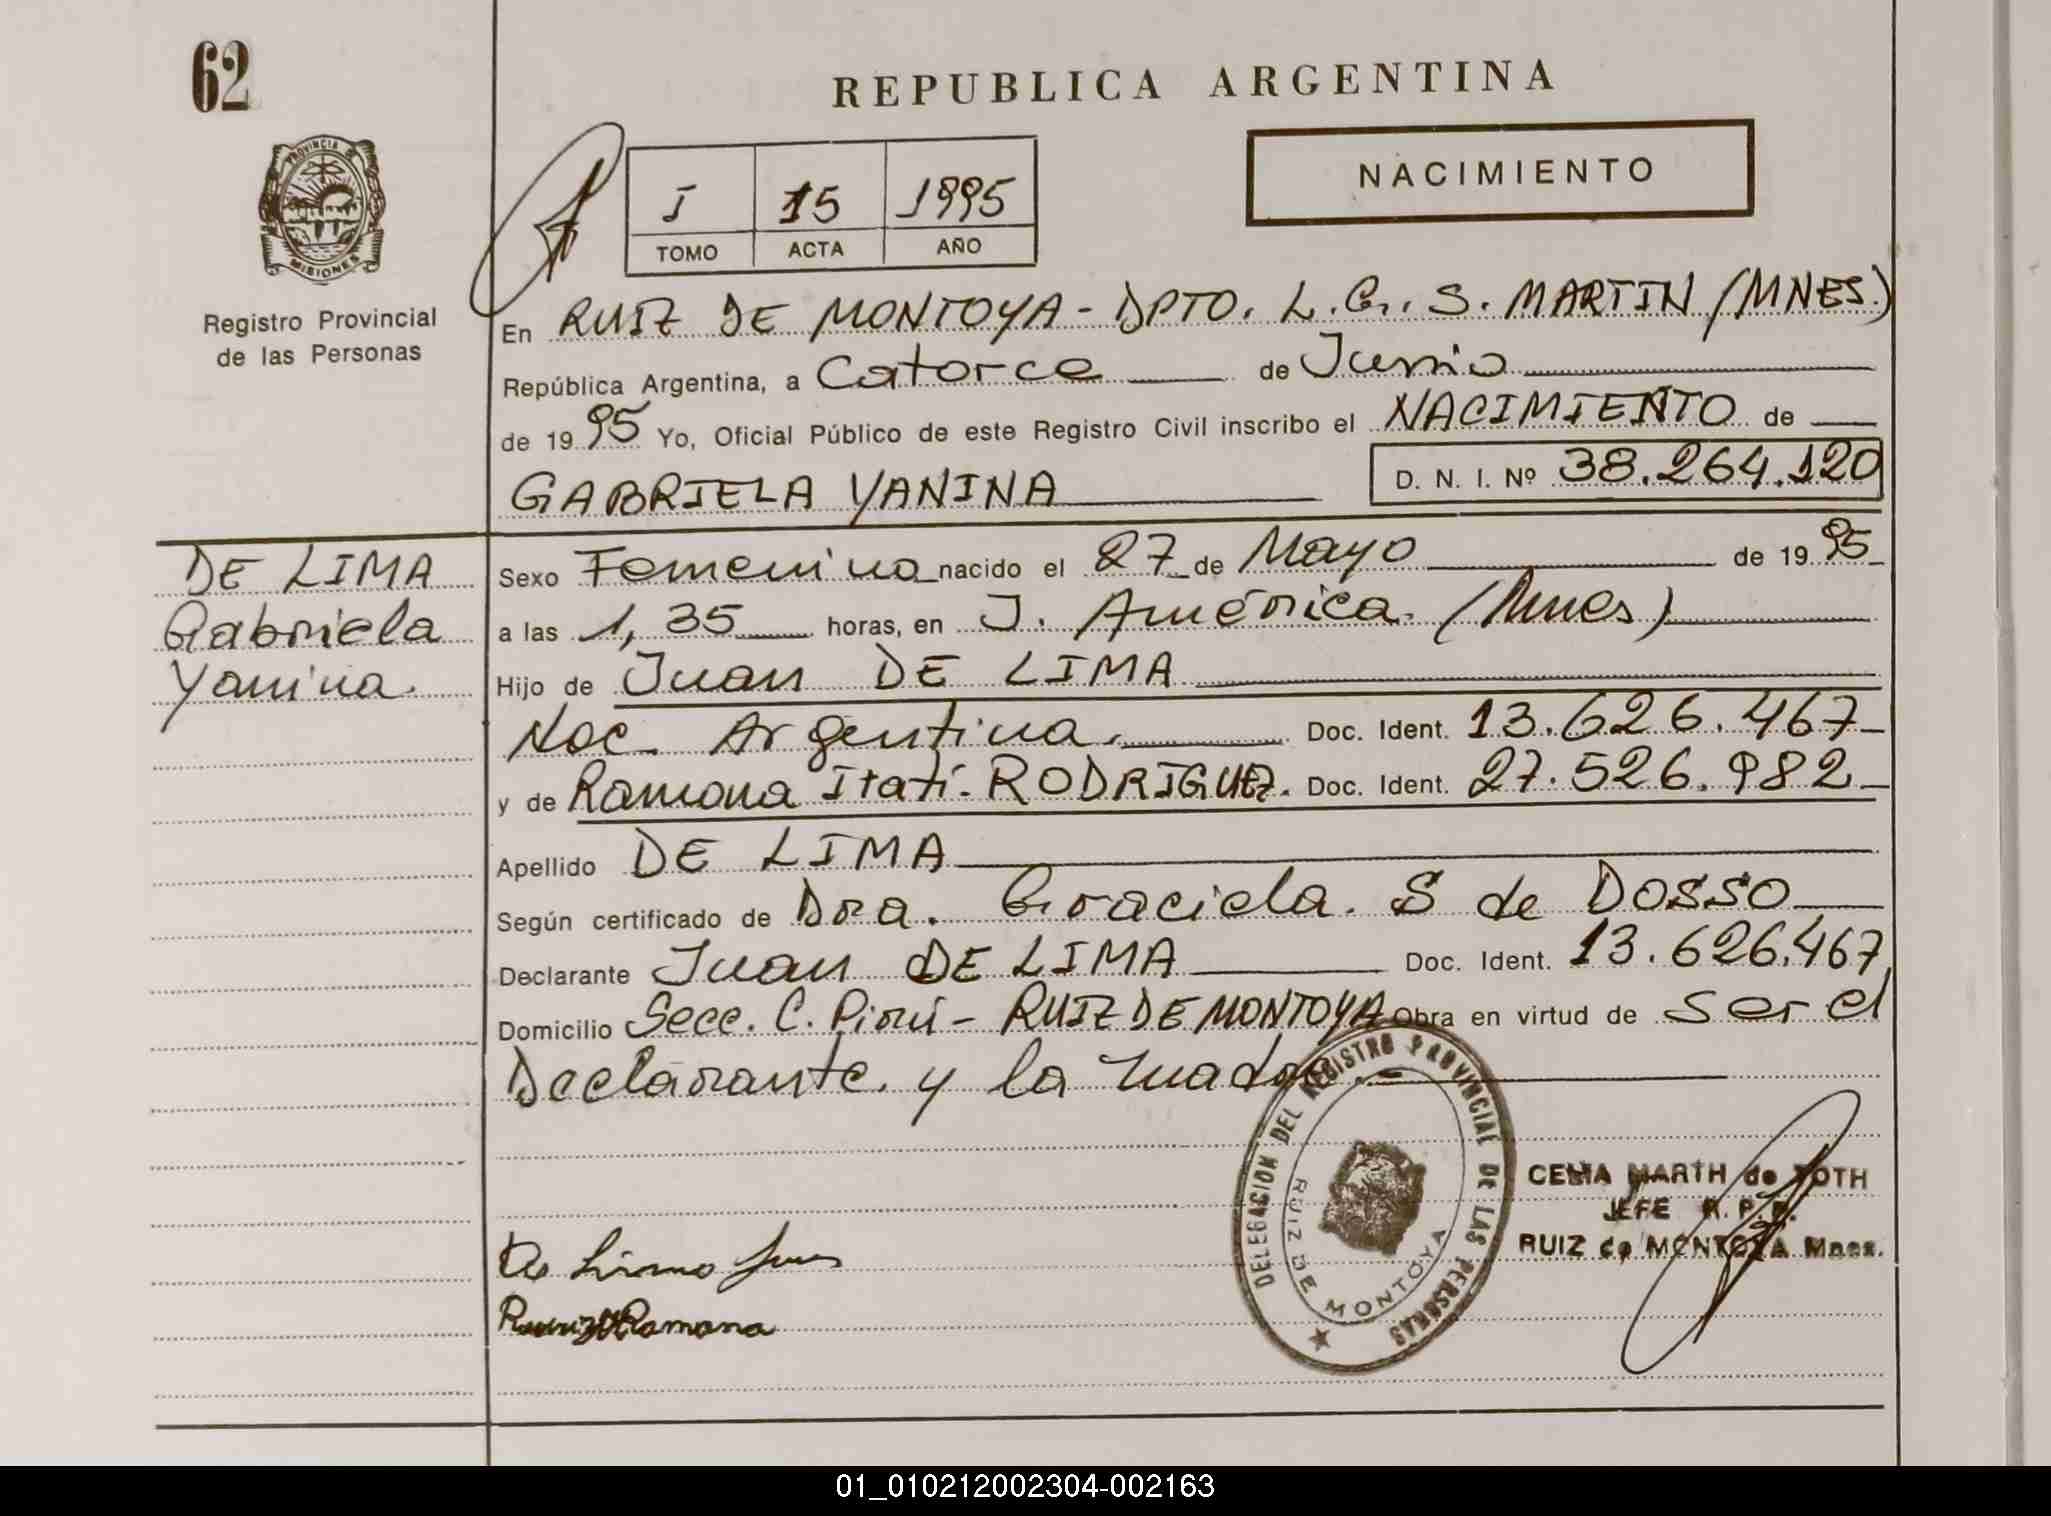 62
REPUBLICA ARGENTINA
PROVINCIA DE
MISIONES
Registro Provincial
de las Personas
I 15 1995
TOMO ACTA AÑO
NACIMIENTO
En RUIZ DE MONTOYA - DPTO. L.G.S. MARTIN (MNES.)
República Argentina, a Catorce de Junio
de 1995 Yo, Oficial Público de este Registro Civil inscribo el NACIMIENTO de
GABRIELA YANINA D. N. I. Nº 38.264.120
DE LIMA
Gabriela
Yanina.
Sexo Femenino nacido el 27 de Mayo de 1995
a las 1,35 horas, en J. América. (Mnes)
Hijo de Juan DE LIMA
Nac. Argentina. Doc. Ident. 13.626.467
y de Ramona Itatí - RODRIGUEZ. Doc. Ident. 27.526.982
Apellido DE LIMA
Según certificado de Dra. Graciela. S de DOSSO
Declarante Juan DE LIMA Doc. Ident. 13.626.467
Domicilio Secc. C. Pirú - RUIZ DE MONTOYA Obra en virtud de ser el
Declarante. y la madre.-
DELEGACION DEL REGISTRO PROVINCIAL DE LAS PERSONAS
RUIZ DE MONTOYA
MARTH de TOTH
JEFE R. P. P.
RUIZ de MONTOYA Mnes.
De Lima Juan
Ramona
01_010212002304-002163